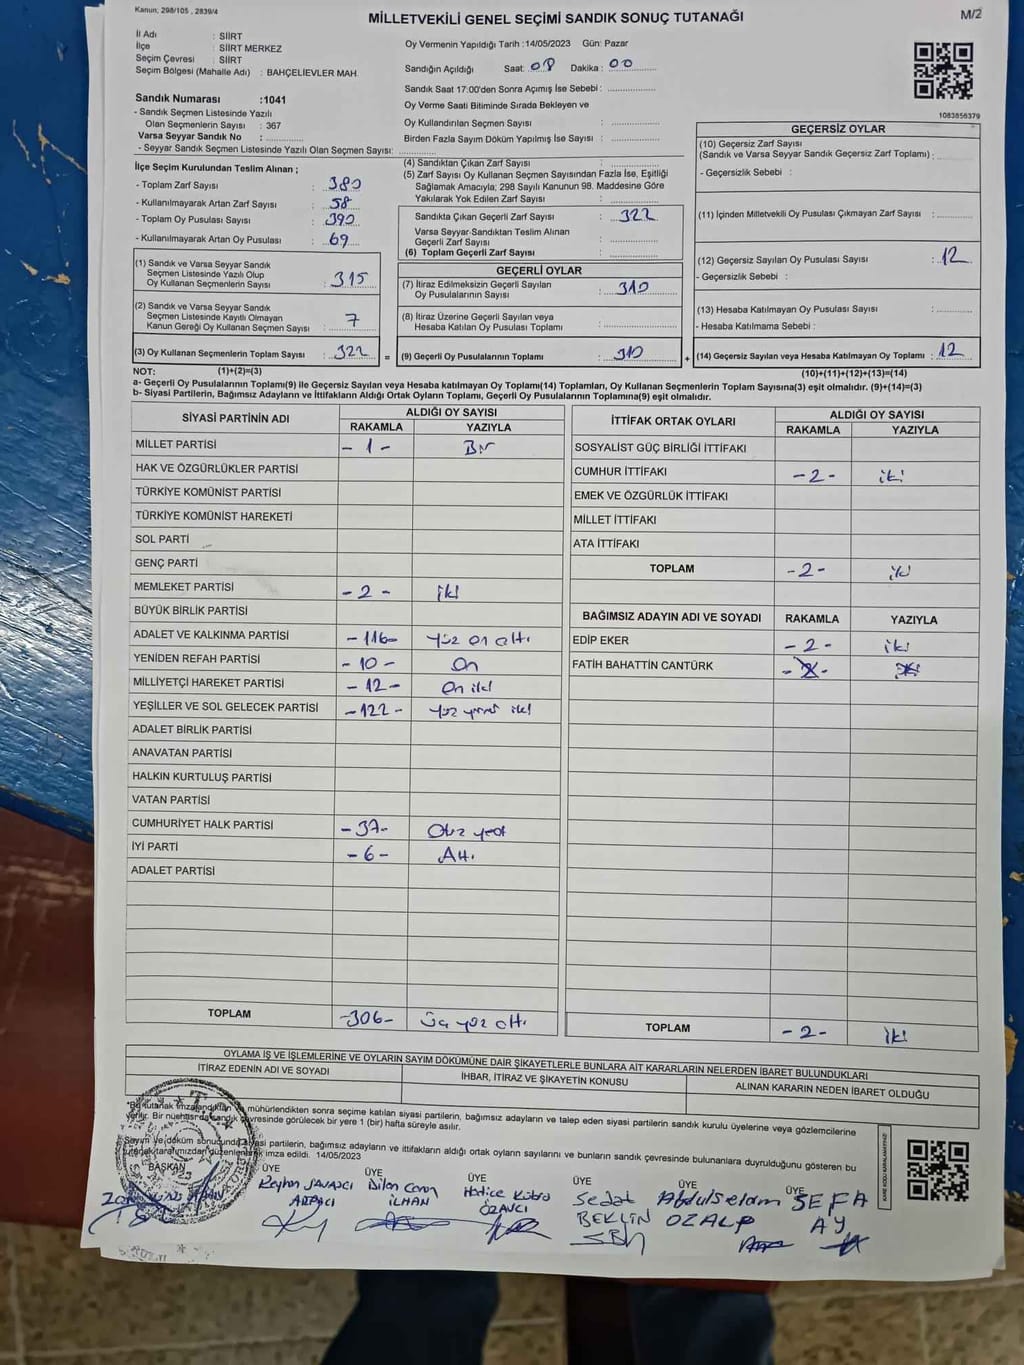 Kanun, 298/105 , 2839/4
MİLLETVEKİLİ GENEL SEÇİMİ SANDIK SONUÇ TUTANAĞI
M/2
İl Adı : SİİRT
İlçe : SİİRT MERKEZ
Seçim Çevresi : SİİRT
Seçim Bölgesi (Mahalle Adı) : BAHÇELİEVLER MAH.
Sandık Numarası :1041
- Sandık Seçmen Listesinde Yazılı
Olan Seçmenlerin Sayısı : 367
Varsa Seyyar Sandık No :
- Seyyar Sandık Seçmen Listesinde Yazılı Olan Seçmen Sayısı:
Oy Vermenin Yapıldığı Tarih :14/05/2023 Gün: Pazar
Sandığın Açıldığı Saat: 08 Dakika : 00
Sandık Saat 17:00'den Sonra Açımış İse Sebebi :
Oy Verme Saati Bitiminde Sırada Bekleyen ve
Oy Kullandırılan Seçmen Sayısı :
Birden Fazla Sayım Döküm Yapılmış İse Sayısı :
1083856379
İlçe Seçim Kurulundan Teslim Alınan ;
- Toplam Zarf Sayısı : 380
- Kullanılmayarak Artan Zarf Sayısı : 58
- Toplam Oy Pusulası Sayısı : 390
- Kullanılmayarak Artan Oy Pusulası : 69
(1) Sandık ve Varsa Seyyar Sandık
Seçmen Listesinde Yazılı Olup
Oy Kullanan Seçmenlerin Sayısı : 315
(2) Sandık ve Varsa Seyyar Sandık
Seçmen Listesinde Kayıtlı Olmayan
Kanun Gereği Oy Kullanan Seçmen Sayısı : 7
(3) Oy Kullanan Seçmenlerin Toplam Sayısı : 322
(4) Sandıktan Çıkan Zarf Sayısı :
(5) Zarf Sayısı Oy Kullanan Seçmen Sayısından Fazla İse, Eşitliği
Sağlamak Amacıyla; 298 Sayılı Kanunun 98. Maddesine Göre
Yakılarak Yok Edilen Zarf Sayısı :
Sandıkta Çıkan Geçerli Zarf Sayısı : 322
Varsa Seyyar Sandıktan Teslim Alınan
Geçerli Zarf Sayısı :
(6) Toplam Geçerli Zarf Sayısı :
GEÇERLİ OYLAR
(7) İtiraz Edilmeksizin Geçerli Sayılan
Oy Pusulalarının Sayısı : 310
(8) İtiraz Üzerine Geçerli Sayılan veya
Hesaba Katılan Oy Pusulası Toplamı :
= (9) Geçerli Oy Pusulalarının Toplamı : 310
GEÇERSİZ OYLAR
(10) Geçersiz Zarf Sayısı
(Sandık ve Varsa Seyyar Sandık Geçersiz Zarf Toplamı) :
- Geçersizlik Sebebi :
(11) İçinden Milletvekili Oy Pusulası Çıkmayan Zarf Sayısı :
(12) Geçersiz Sayılan Oy Pusulası Sayısı : 12
- Geçersizlik Sebebi :
(13) Hesaba Katılmayan Oy Pusulası Sayısı :
- Hesaba Katılmama Sebebi :
+ (14) Geçersiz Sayılan veya Hesaba Katılmayan Oy Toplamı : 12
NOT: (1)+(2)=(3) (10)+(11)+(12)+(13)=(14)
a- Geçerli Oy Pusulalarının Toplamı(9) ile Geçersiz Sayılan veya Hesaba katılmayan Oy Toplamı(14) Toplamları, Oy Kullanan Seçmenlerin Toplam Sayısına(3) eşit olmalıdır. (9)+(14)=(3)
b- Siyasi Partilerin, Bağımsız Adayların ve İttifakların Aldığı Ortak Oyların Toplamı, Geçerli Oy Pusulalarının Toplamına(9) eşit olmalıdır.
SİYASİ PARTİNİN ADI ALDIĞI OY SAYISI
RAKAMLA YAZIYLA
MİLLET PARTİSİ -1- Bir
HAK VE ÖZGÜRLÜKLER PARTİSİ
TÜRKİYE KOMÜNİST PARTİSİ
TÜRKİYE KOMÜNİST HAREKETİ
SOL PARTİ
GENÇ PARTİ
MEMLEKET PARTİSİ -2- iki
BÜYÜK BİRLİK PARTİSİ
ADALET VE KALKINMA PARTİSİ -116- yüz on altı
YENİDEN REFAH PARTİSİ -10- On
MİLLİYETÇİ HAREKET PARTİSİ -12- On iki
YEŞİLLER VE SOL GELECEK PARTİSİ -122- yüz yirmi iki
ADALET BİRLİK PARTİSİ
ANAVATAN PARTİSİ
HALKIN KURTULUŞ PARTİSİ
VATAN PARTİSİ
CUMHURİYET HALK PARTİSİ -37- Otuz yedi
İYİ PARTİ -6- Altı
ADALET PARTİSİ
TOPLAM -306- üç yüz altı
İTTİFAK ORTAK OYLARI ALDIĞI OY SAYISI
RAKAMLA YAZIYLA
SOSYALİST GÜÇ BİRLİĞİ İTTİFAKI
CUMHUR İTTİFAKI -2- iki
EMEK VE ÖZGÜRLÜK İTTİFAKI
MİLLET İTTİFAKI
ATA İTTİFAKI
TOPLAM -2- iki
BAĞIMSIZ ADAYIN ADI VE SOYADI RAKAMLA YAZIYLA
EDİP EKER -2- iki
FATİH BAHATTİN CANTÜRK
TOPLAM -2- iki
OYLAMA İŞ VE İŞLEMLERİNE VE OYLARIN SAYIM DÖKÜMÜNE DAİR ŞİKAYETLERLE BUNLARA AİT KARARLARIN NELERDEN İBARET BULUNDUKLARI
İTİRAZ EDENİN ADI VE SOYADI İHBAR, İTİRAZ VE ŞİKAYETİN KONUSU ALINAN KARARIN NEDEN İBARET OLDUĞU
*Bu tutanak imzalandıktan mühürlendikten sonra seçime katılan siyasi partilerin, bağımsız adayların ve talep eden siyasi partilerin sandık kurulu üyelerine veya gözlemcilerine
verilir. Bir nüshası da sandık çevresinde görülecek bir yere 1 (bir) hafta süreyle asılır.
Sayım ve döküm sonucunda siyasi partilerin, bağımsız adayların ve ittifakların aldığı ortak oyların sayılarını ve bunların sandık çevresinde bulunanlara duyrulduğunu gösteren bu
tutanak tarafımızdan düzenlenerek imza edildi. 14/05/2023
BAŞKAN ÜYE ÜYE ÜYE ÜYE ÜYE
Reyhan SAVAŞCI Dilan Canan İLHAN Hatice Kübra ÖZAVCI Sedat BEKLİN Abdulselam ÖZALP SEFA AY
T.C.